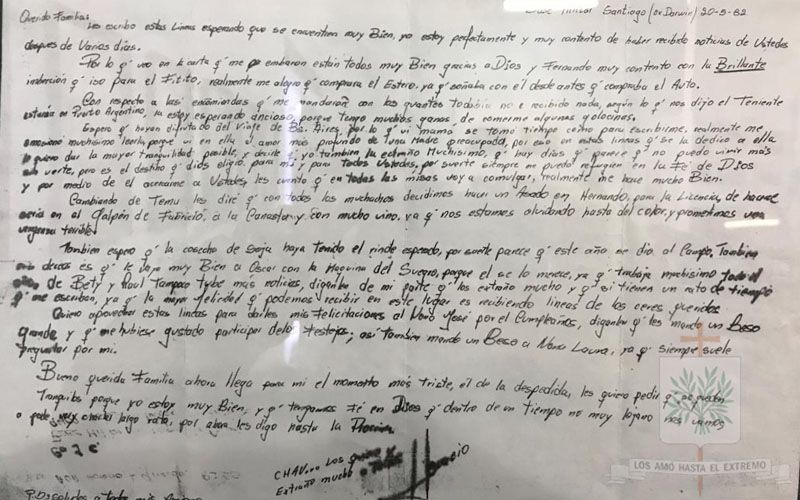 Santiago (ex Darwin) 20-5-82
Querida Familia:
Les escribo estas Lineas esperando que se encuentren muy Bien, yo estoy perfectamente y muy contento de haber recibido noticias de Ustedes
despues de Varios dias.
Por lo q' veo en la carta q' me embaron están todos muy Bien gracias a Dios y Fernando muy contento con la Brillante
q' iso para el Fitito, realmente me alegro q' comprara el Estero, ya q' soñaba con el desde antes q' compraba el Auto.
Con respecto a las encomiendas q' me mandaron con los guantes todabia no e recibido nada, según lo q' nos dijo el Teniente
estarian en Puerto Argentino, ya estoy esperando ancioso, porque tengo muchas ganas de comerme algunas golocinas.
Espero q' hayan disfrutado del Viaje de Bs. Aires, por lo q' vi mamá se tomó tiempo como para escribirme, realmente me
emocionó muchisimo leerla, porque vi en ella el amor más profundo de una Madre preocupada, por eso en estas lineas q' se la dedico a ella
le quiero dar la mayor tranquilidad posible, y decirle q' yo tambien la extraño muchisimo, q' hay dias q' parece q' no puedo vivir más
sin verte, pero es el destino q' dios eligió para mi y para todos Ustedes, por suerte siempre me puedo refugiar en la Fé de Dios
y por medio de el acercarme a Ustedes, les cuento q' en todas las misas voy a comulgar, realmente me hace mucho Bien.
Cambiando de Tema les diré q' con todos los muchachos decidimos hacer un Asado en Hernando, para la Licencia, de hacerse
seria en el Galpón de Fabricio, a la Canasta y con mucho vino, ya q' nos estamos olvidando hasta del color, y prometimos una
verguenza terrible.
Tambien espero q' la cosecha de Soja haya tenido el rinde esperado, por suerte parece q' este año se dio al Campo, Tambien
deceos es q' le vaya muy Bien a Oscar con la Maquina del Suegro, porque el se lo merece, ya q' trabaja muchisimo todo el
de Bety y Raul Tampoco Tube más noticias, diganles de mi parte q' los extraño mucho y q' si tienen un rato de tiempo
q' me escriban, ya q' la mayor felicidad q' podemos recibir en este lugar es recibiendo lineas de los ceres queridos
Quiero aprovechar estas lineas para darles mis felicitaciones al Nono José por el Cumpleaños, diganles q' les mando un Beso
grande y q' me hubiese gustado participar de los Festejos; asi tambien mando un Beso a Nona Laura, ya q' siempre suele
preguntar por mi.
Bueno querida Familia ahora llega para mi el momento más triste, el de la despedida, les quiero pedir q' se queden
Tranquilos porque yo estoy muy Bien, y q' tengamos Fé en Dios q' dentro de un tiempo no muy lejano nos vamos
a poder charlar largo rato, por ahora les digo hasta la
CHAU.. Los quiere
Extraño mucho
P.D: Saludos a todos mis
LOS AMÓ HASTA EL EXTREMO